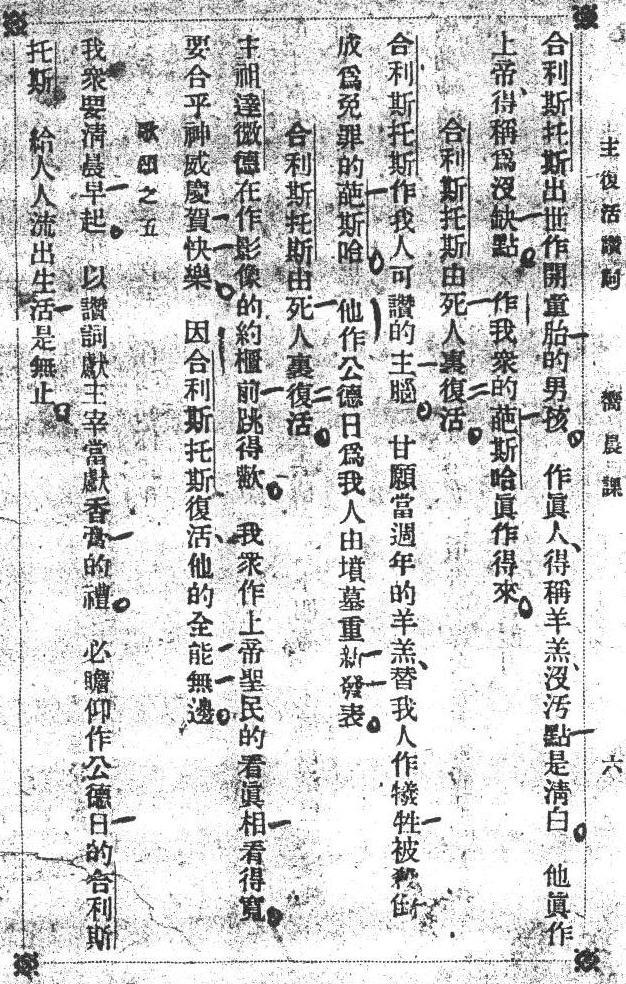 主復活讚詞 嚮晨課 六
合利斯托斯出世作開童胎的男孩。作眞人、得稱羊羔、沒汚點是淸白。他眞作
上帝、得稱爲沒缺點。作我衆的葩斯哈眞作得來。
合利斯托斯由死人裏復活。
合利斯托斯作我人可讚的主腦。甘願當週年的羊羔、替我人作犧牲被殺
成爲免罪的葩斯哈。他作公德日爲我人由墳墓重新發表。
合利斯托斯由死人裏復活。
主祖達微德在作影像的約櫃前跳得歡。我衆作上帝聖民的看眞相看得寬。
要合乎神威慶賀快樂。因合利斯托斯復活、他的全能無邊。
歌頌之五
我衆要清晨早起。以讚詞獻主宰當獻香膏的禮。必瞻仰作公德日的合利斯
托斯 給人人流出生活是無止。